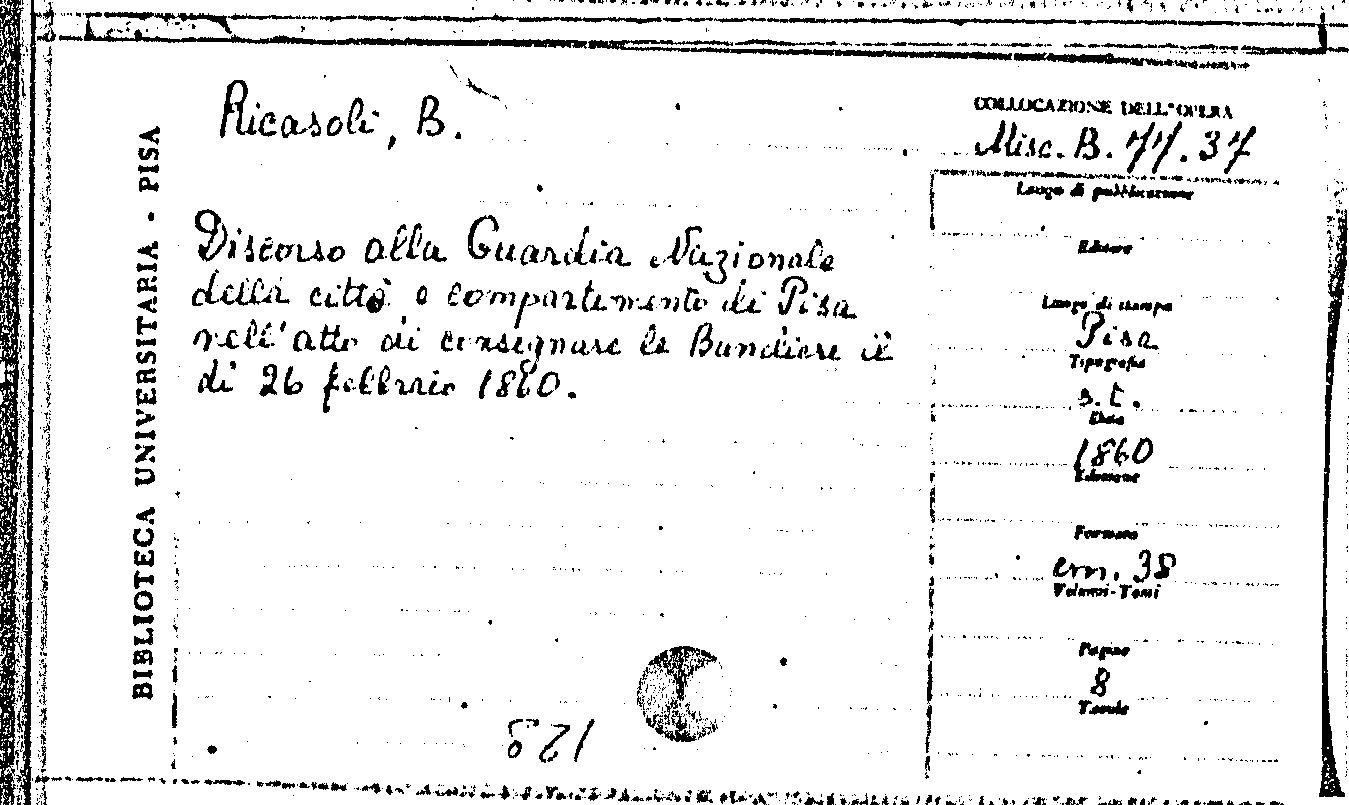 BIBLIOTECA UNIVERSITARIA - PISA
Ricasoli, B.
Discorso alla Guardia Nazionale
della città e compartimento di Pisa
nell'atto di consegnare le Bandiere il
di 26 febbraio 1860.
COLLOCAZIONE DELL'OPERA
Misc. B. 77.37
Luogo di pubblicazione
Editore
Luogo di stampa
Pisa
Tipografia
s.t.
Data
1860
Edizione
Formato
cm. 38
Volumi-Tomi
Pagine
8
Tavole